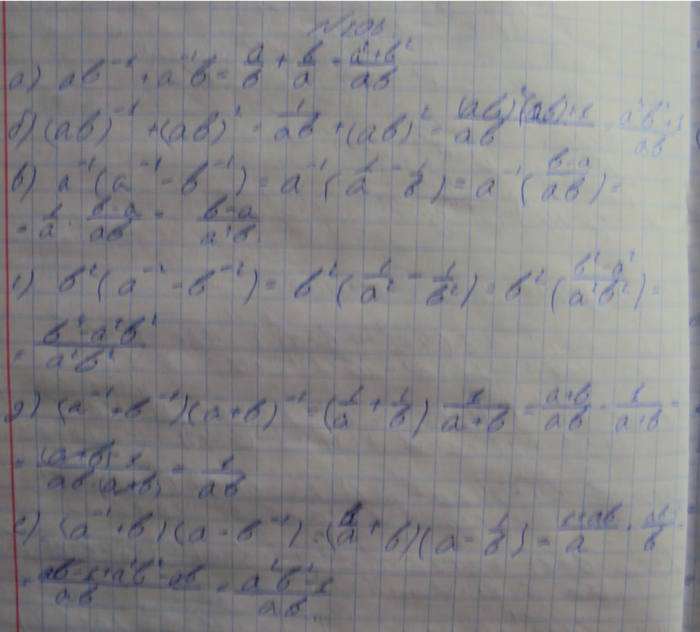 а) ab⁻¹ + a⁻¹b = a/b + b/a = (a² + b²)/ab
б) (ab)⁻¹ + (ab)² = 1/ab + (ab)² =
в) a⁻¹(a⁻¹ - b⁻¹) = a⁻¹(1/a - 1/b) = a⁻¹((b-a)/ab) =
= 1/a · (b-a)/ab = (b-a)/a²b
г) b²(a⁻² - b⁻²) = b²(1/a² - 1/b²) = b²((b² - a²)/a²b²) =
=
д) (a⁻¹ + b⁻¹)(a+b)⁻¹ = (1/a + 1/b) 1/(a+b) = (a+b)/ab · 1/(a+b) =
= (a+b)·1/ab·(a+b) = 1/ab
е) (a⁻¹ + b)(a - b⁻¹) = (1/a + b)(a - 1/b) = (1+ab)/a ·
= (ab-1+a²b²-ab)/ab = (a²b²-1)/ab